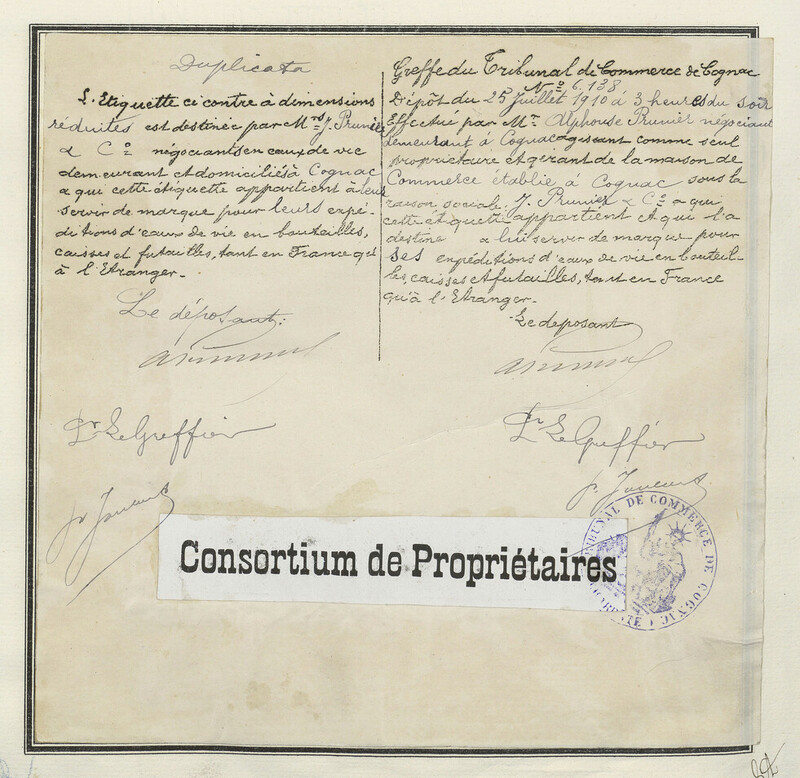 Duplicata
L'Etiquette ci contre à dimensions
réduites est destinée par Mrs J. Prunier
& Co négociants en eaux de vie
demeurant et domiciliés à Cognac
a qui cette étiquette appartient à leur
servir de marque pour leurs expé-
ditions d'eaux de vie en bouteilles,
caisses et futailles, tant en France qu'
à l'Etranger.
Le déposant:
Pr Le Greffier
Greffe du Tribunal de Commerce de Cognac
No 6.138
Dépôt du 25 Juillet 1910 à 3 heures du soir
Effectué par Mr. Alphonse Prunier négociant
demeurant à Cognac agissant comme seul
propriétaire et gérant de la maison de
Commerce établie à Cognac sous la
raison sociale J. Prunier & Co a qui
cette étiquette appartient et qui l'a
destine a lui servir de marque pour
ses expéditions d'eaux de vie en bouteil-
les, caisses et futailles, tant en France
qu'à l'Etranger.
Le deposant
Pr Le Greffier
Consortium de Propriétaires
TRIBUNAL DE COMMERCE DE COGNAC